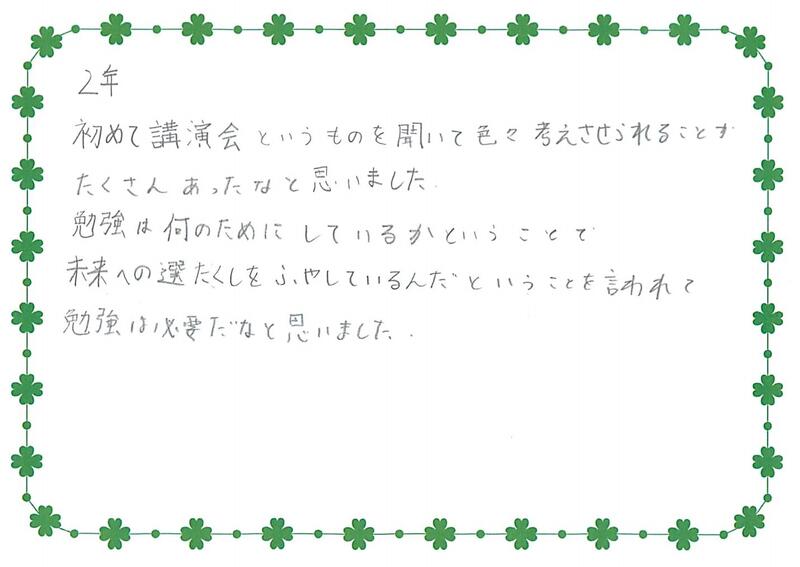 2年
初めて講演会というものを聞いて色々考えさせられることが
たくさんあったなと思いました.
勉強は何のためにしているかということで
未来への選たくしをふやしているんだということを言われて
勉強は必要だなと思いました.